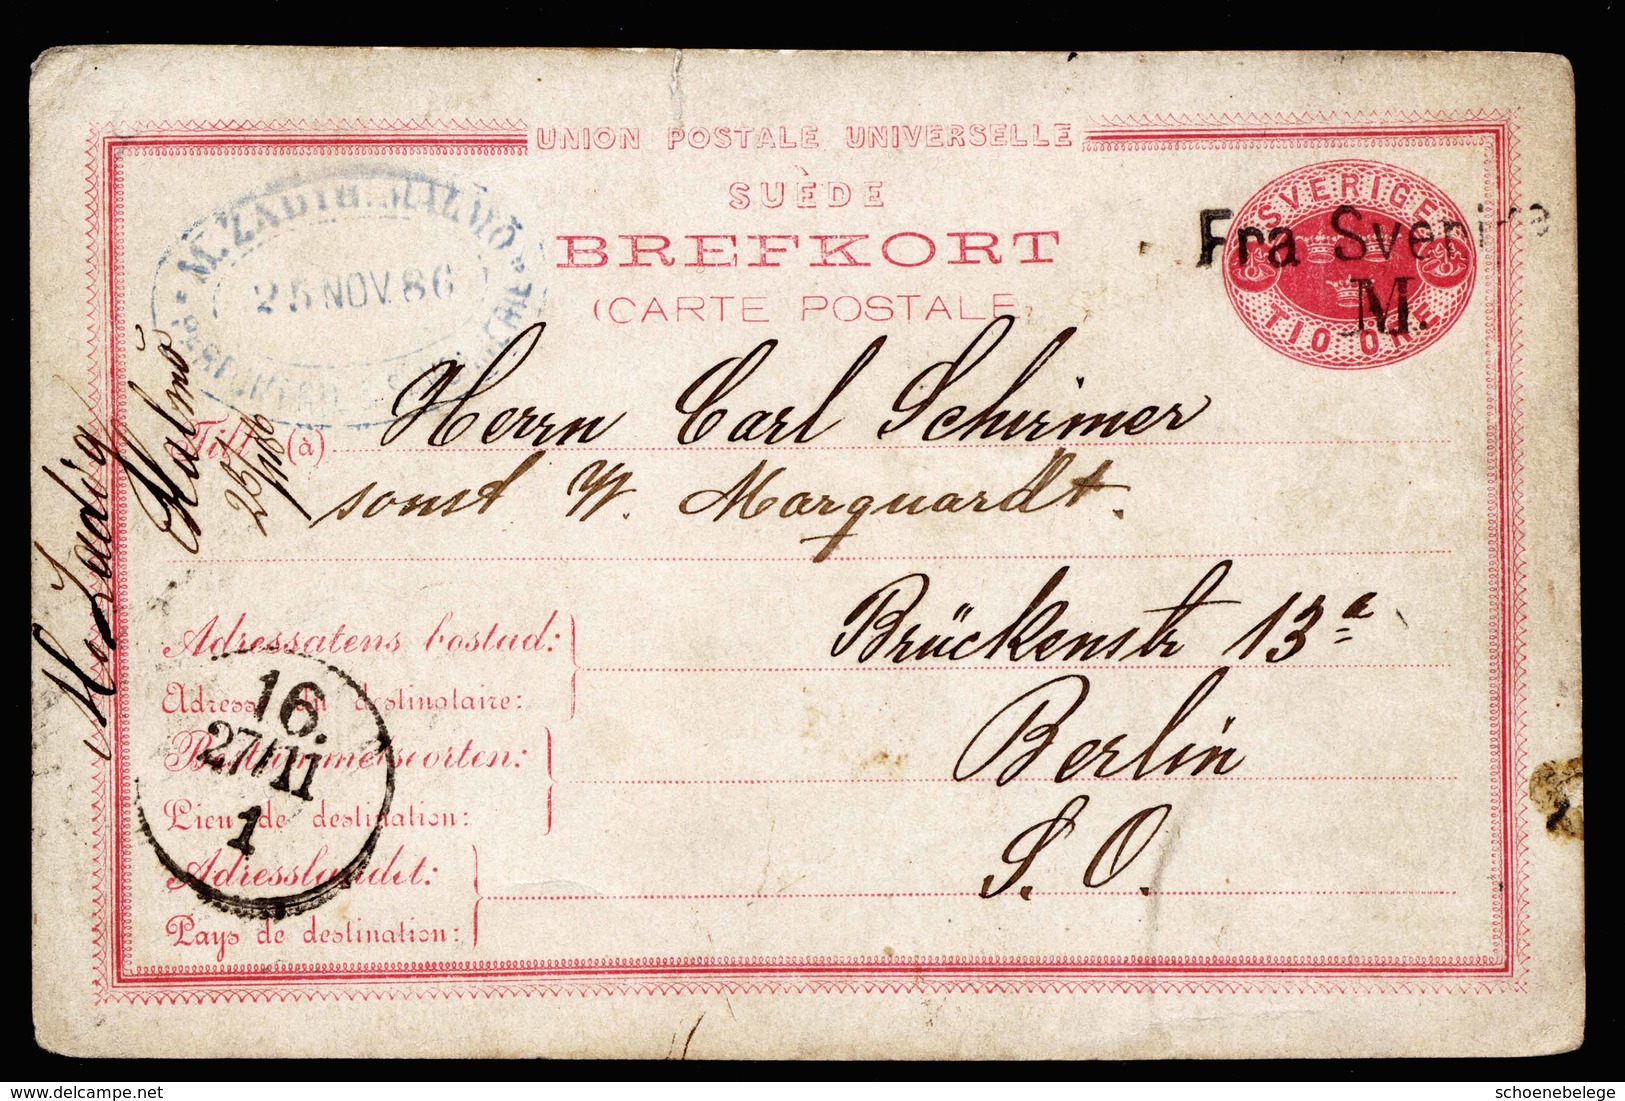 UNION POSTALE UNIVERSELLE
SUÈDE
BREFKORT
(CARTE POSTALE
SVERIGE
TIO ÖRE
Fra Sverige
M.
M. ZADIG. MALMÖ
25 NOV. 86
M. Zadig
Malmö
25/11 86
Till (à)
Herrn Carl Schirmer
sonst W. Marquardt.
Brückenstr 13 a
Berlin
S. O.
Adressatens bostad:
Adresse du destinataire:
Bestämmelseorten:
Lieu de destination:
Adresslandet:
Pays de destination:
16.
27/11
1
delcampe.net
schoenebelege